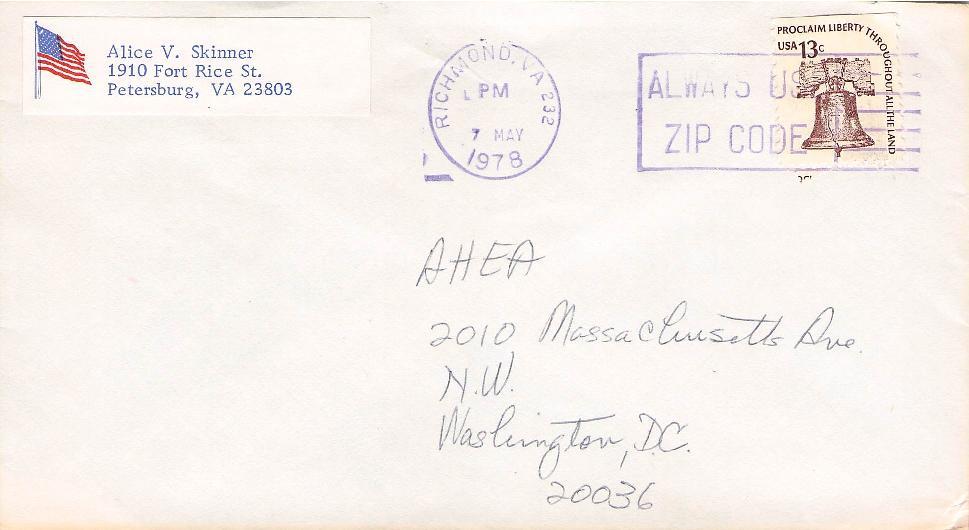 Alice V. Skinner
1910 Fort Rice St.
Petersburg, VA 23803
RICHMOND, VA 232
PM
7 MAY
1978
ALWAYS US
ZIP CODE
PROCLAIM LIBERTY THROUGHOUT ALL THE LAND
USA 13c
AHEA
2010 Massachusetts Ave.
N.W.
Washington, D.C.
20036